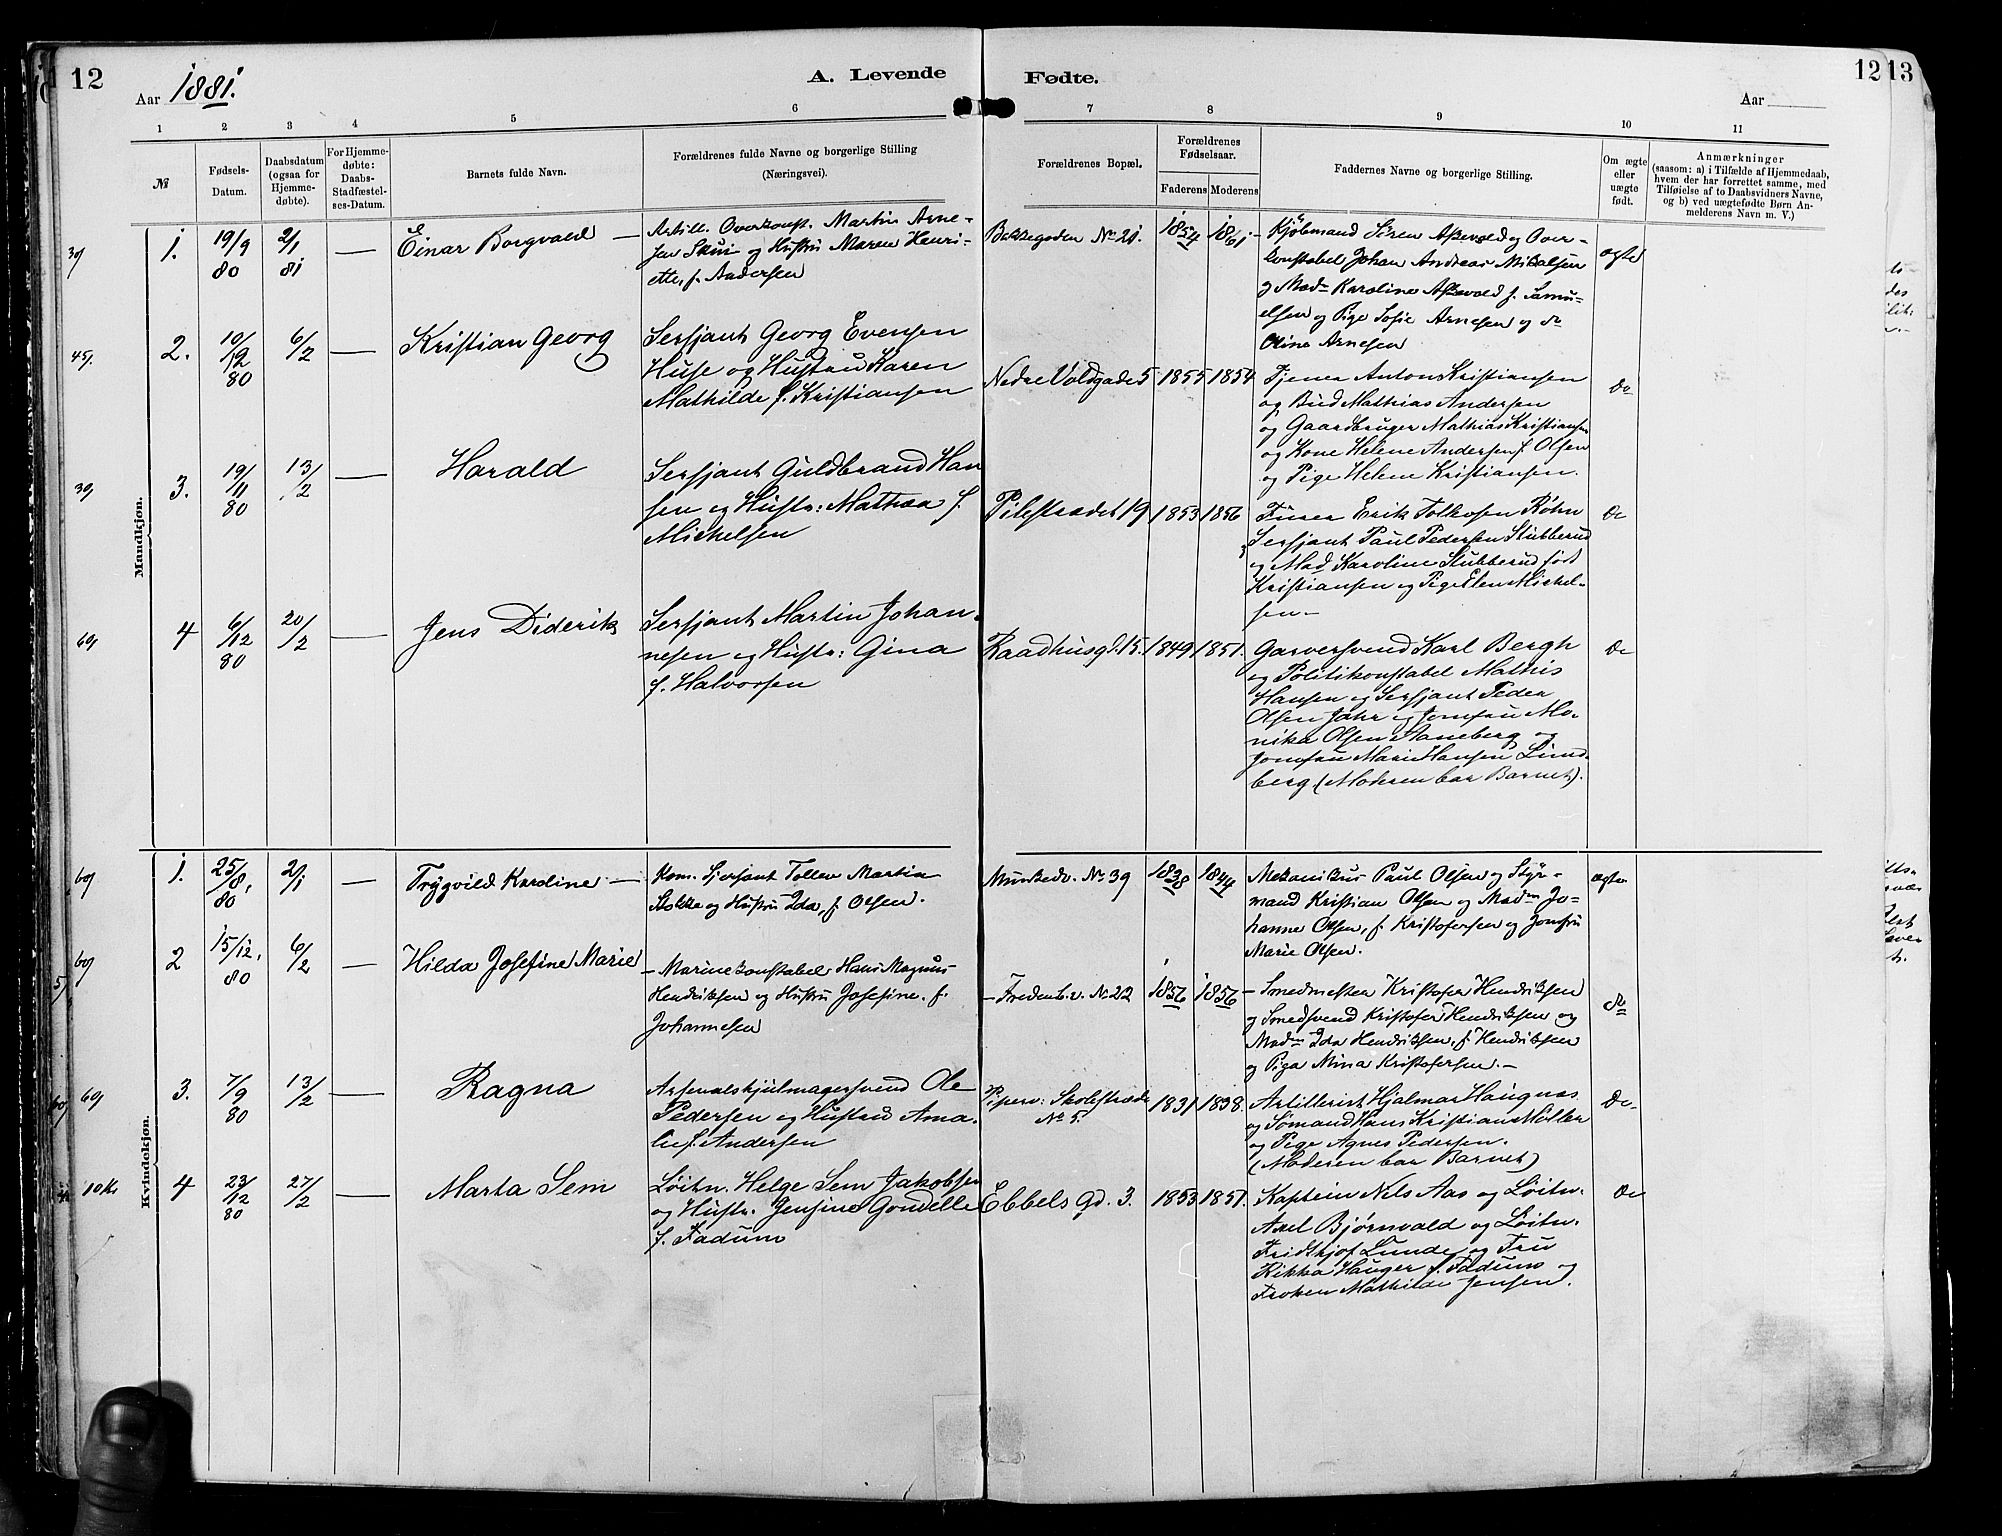 12
Aar 1881.
A. Levende
Fødte.
Aar
12
13
1
2
3
4
5
6
7
8
9
10
11
№
Fødsels-
Datum.
Daabsdatum
(ogsaa for
Hjemme-
døbte).
For Hjemme-
døbte:
Daabs-
Stadfæstel-
ses-Datum.
Barnets fulde Navn.
Forældrenes fulde Navne og borgerlige Stilling
(Næringsvei).
Forældrenes Bopæl.
Forældrenes
Fødselsaar.
Faderens
Moderens
Faddernes Navne og borgerlige Stilling.
Om ægte
eller
uægte
født.
Anmærkninger
(saasom: a) i Tilfælde af Hjemmedaab,
hvem der har forrettet samme, med
Tilføielse af to Daabsvidners Navne,
og b) ved uægtefødte Børn An-
melderens Navn m. V.)
Mandkjøn.
1.
19/9
80
2/1
81
Einar Borgvald
Artill. Overkonst. Martin Arne-
sen Skui og Hustru Maren Henri-
ette, f. Andersen
Bakkegaden No 21.
1854
1861
Kjøbmand Sören Askevold og Over-
konstabel Johan Andreas Mikalsen
og Mad. Karoline Askevold f. Samu-
elsen og Pige Sofie Arnesen og do
Oline Arnesen
ægte
2.
10/12
80
6/2
Kristian Georg
Sersjant Georg Evensen
Huse og Hustru Karen
Mathilde f. Kristiansen
Nedre Voldgade 5
1855
1854
Tjener Anton Kristiansen
og Bud Mathias Andersen
og Gaardbruger Mathias Kristiansen
og Kone Helene Andersen f. Olsen
og Pige Helene Kristiansen.
Do
3.
19/11
80
13/2
Harald
Sersjant Guldbrand Han
sen og Hustr: Mathea f.
Mickelsen
Pilestrædet 19
1853
1856
Furer Erik Tolkvsen Röhn
Sersjant Paul Pedersen Stubberud
og Mad Karoline Stubberud født
Kristiansen og Pige Elen Mickel-
sen
Do
4
6/12
80
20/2
Jens Diderik
Sersjant Martin Johan-
nesen og Hustr: Gina
f. Halvorsen
Raadhusgd. 15.
1849
1851.
Garversvend Karl Bergh
og Politikonstabel Mathis
Hansen og Sersjant Peder
Olsen Jahr og Jomfru Mo-
nika Olsen Aaneberg og
Jomfru Marie Hansen Lund
berg (Moderen bar Barnet).
Do
Kvindekjøn.
1.
25/8,
80
2/1
Trygvild Karoline
Kom. Sjersant Tollev Martin
Stokke og Hustru Ida, f. Olsen.
Munkedv. No 39
1838
1844
Mekanikus Paul Olsen og Styr-
mand Kristian Olsen og Madm Jo-
hanne Olsen, f. Kristofersen og Jomfru
Marie Olsen.
ægte
2
15/12,
80
6/2
Hilda Josefine Marie
Marinekonstabel Hans Magnus
Hendriksen og Hustru Josefine, f.
Johannesen
Fredensb.v. No 22
1856
1856
Smedmester Kristofer Hendriksen
og Smedsvend Kristofer Hendriksen og
Madm Ida Hendriksen, f. Hendriksen
og Pige Mina Kristofersen.
do
3.
7/9
80
13/2
Ragna
Arsenalshjulmagersvend Ole
Pedersen og Hustru Ama-
lie f. Andersen
Piperv: Skolestræde
No 5.
1831
1838.
Artillerist Hjalmar Haugnæs
og Sömand Hans Kristian Möller
og Pige Agnes Pedersen.
(Moderen bar Barnet)
Do
10 Kr
4
23/12
80
27/2
Marta Sem
Löitn. Helge Sem Jakobsen
og Hustr. Jensine Gondelle
f. Fadum
Ebbels Gd. 3.
1853
1851.
Kaptein Nils Aas og Löitn.
Axel Bjørnvald og Löitn.
Fridthjof Lunde og Fru
Rikka Hauger f. Fadum og
Frøken Mathilde Jensen.
Do